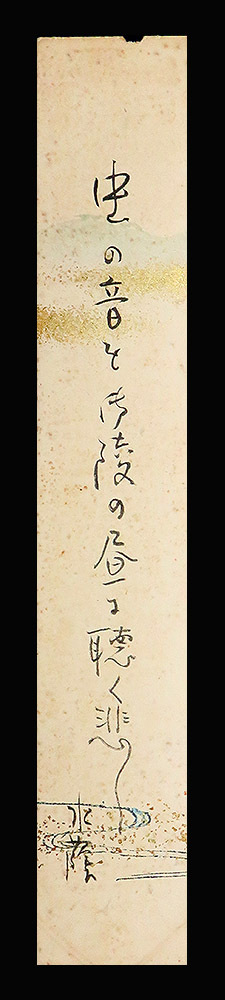 虫の音を御陵の昼に聴く悲し
水蔭